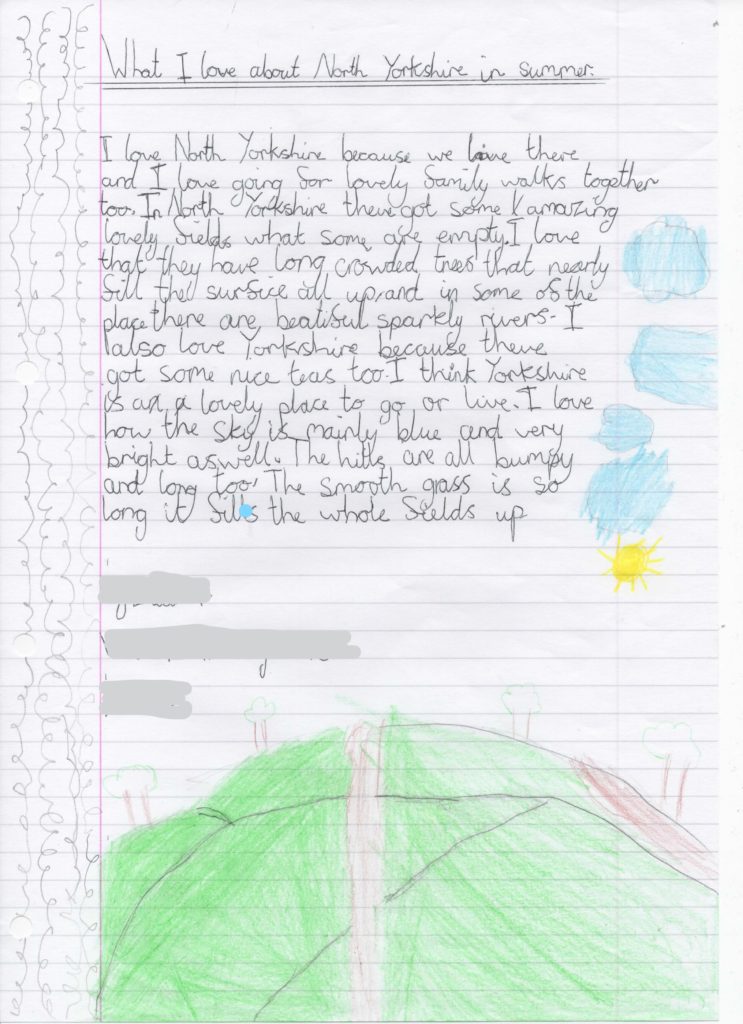 What I love about North Yorkshire in summer.
I love North Yorkshire because we live there
and I love going for lovely family walks together
too. In North Yorkshire theve got some amazing
lovely fields what some are empty. I love
that they have long crowded trees that nearly
fill the surfice all up, and in some of the
place there are beatiful sparkly rivers. I
also love Yorkshire because theve
got some nice teas too. I think Yorkshire
is a lovely place to go or live. I love
how the sky is mainly blue and very
bright aswell. The hills are all bumpy
and long too. The smooth grass is so
long it fills the whole fields up